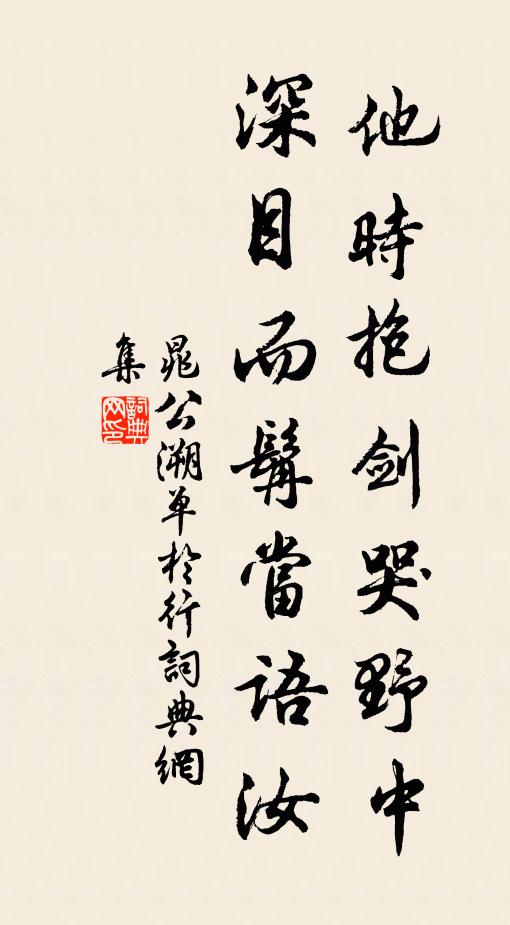 他時抱劍哭野中
深目而髯當語汝
晁公溯單於行詞典網
集
詞典
网印